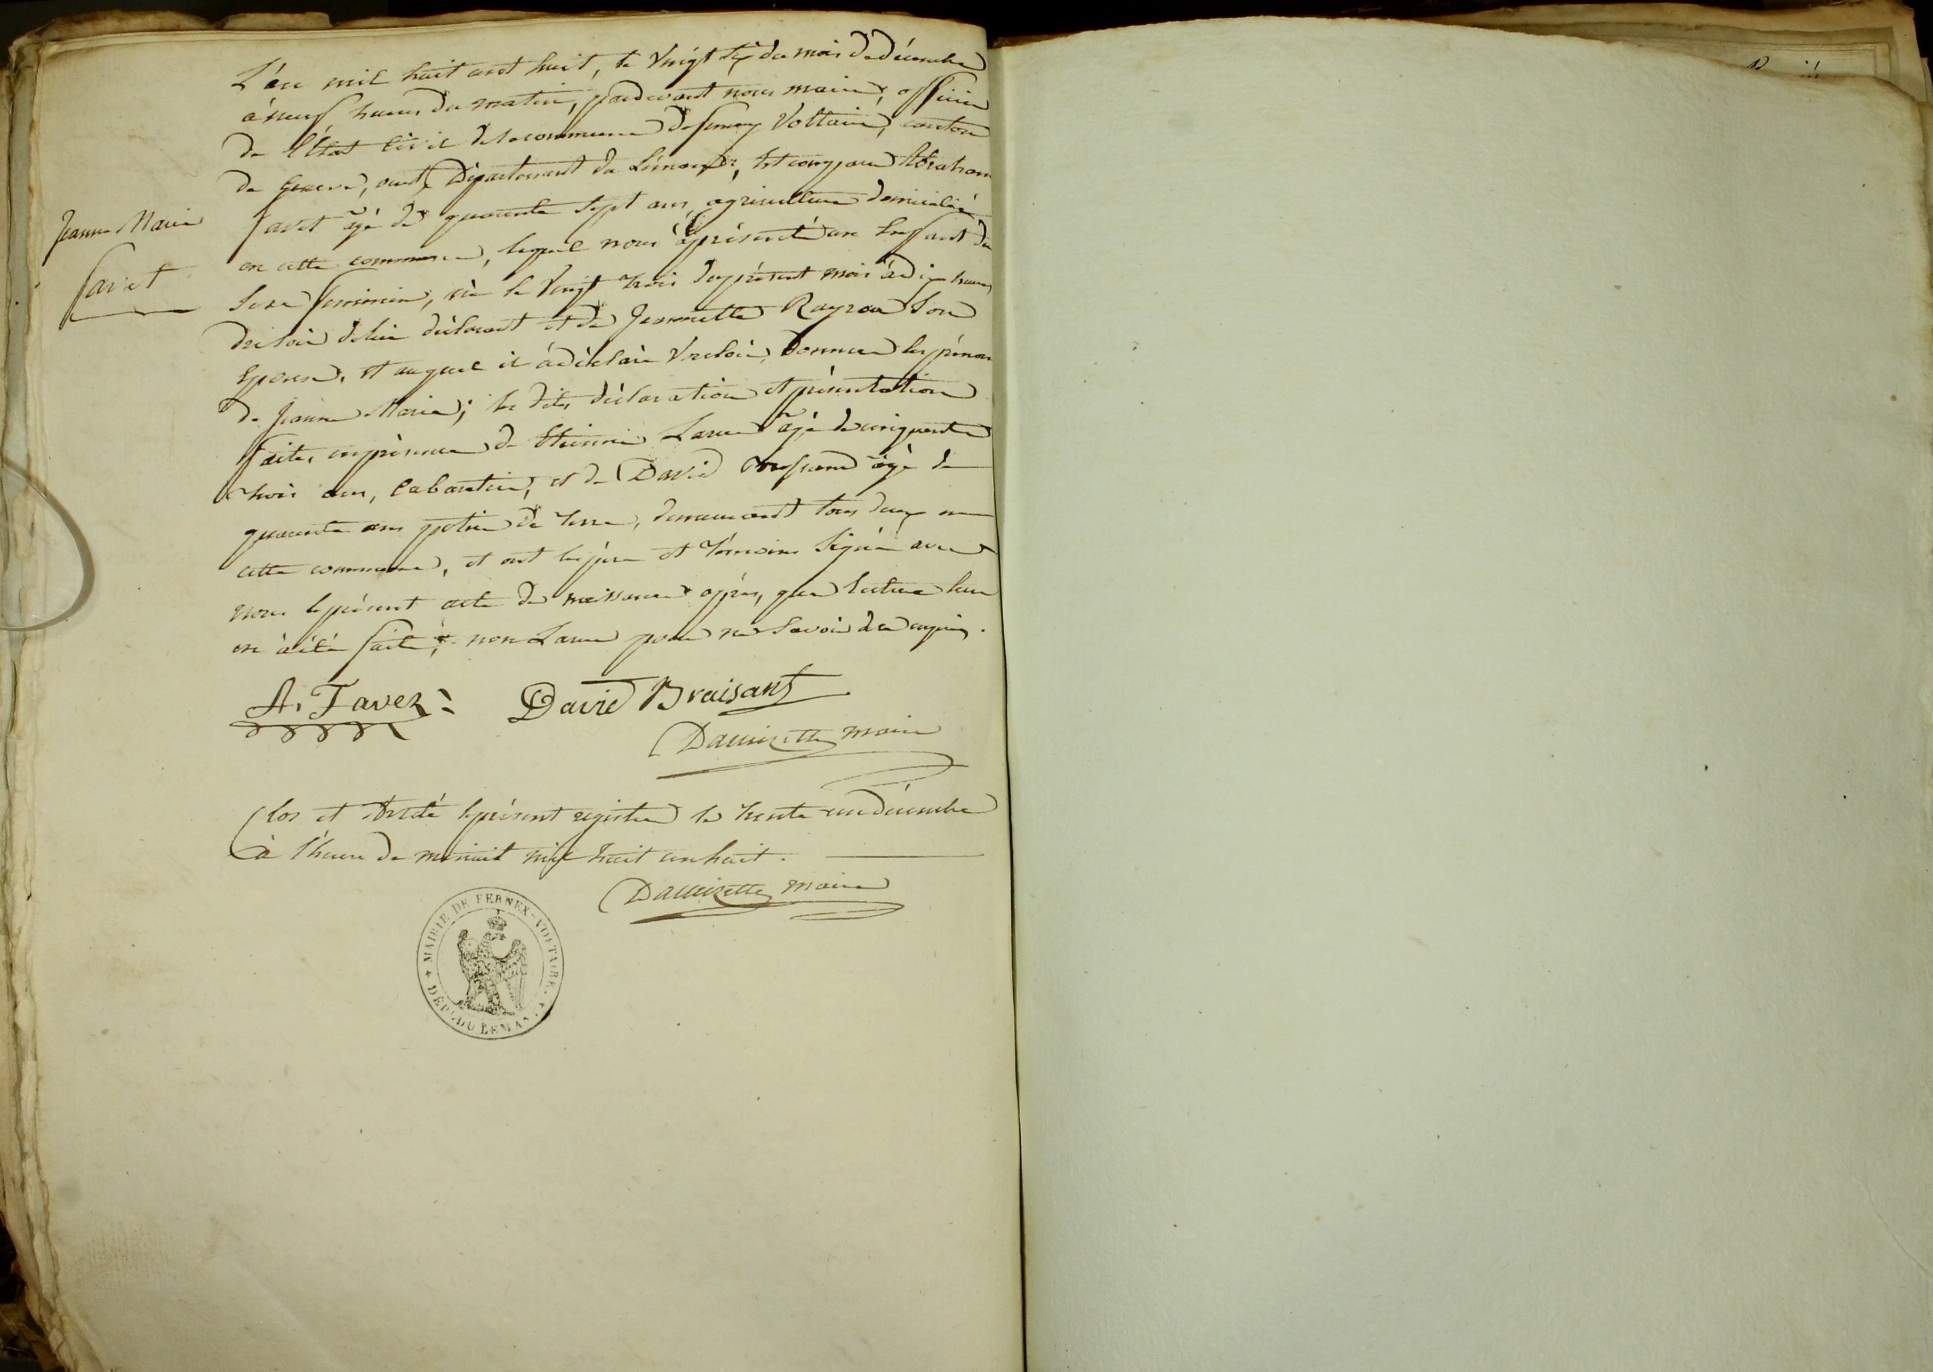 L'an mil huit cent huit, le vingt six du mois de décembre
à neuf heures du matin, pardevant nous maire, officier
de l'État civil de la commune de fernex Voltaire, canton
de Genève, ouest, Département du Léman, est comparu Abraham
Jeanne Marie
favet
favet âgé de quarante sept ans, agriculteur domicilié
en cette commune, lequel nous à présenté un Enfant du
sexe feminin, né le vingt trois du présent mois à dix heures
du soir de lui déclarant et de Jeannette Raynou son
Epouse, et auquel il à déclaré vouloir donner les prénoms
de Jeanne Marie; les dites déclaration et présentation
faites en présence de Etienne Larue âgé de cinquante
trois ans, cabaretier, et de David âgé de
quarante ans potier de terre, demeurant tous deux en
cette commune, et ont les père et témoins signé avec
nous le présent acte de naissance après que lecture leur
en à été faite, non Larue pour ne savoir de ce enquis.
A. Favez
David Braisant
Dauizette maire
Clos et Arrêté le présent registre le trente un décembre
à l'heure de minuit mil huit cen huit.
Dauizette maire
MAIRIE DE FERNEX-VOLTAIRE
DÉP. DU LÉMAN